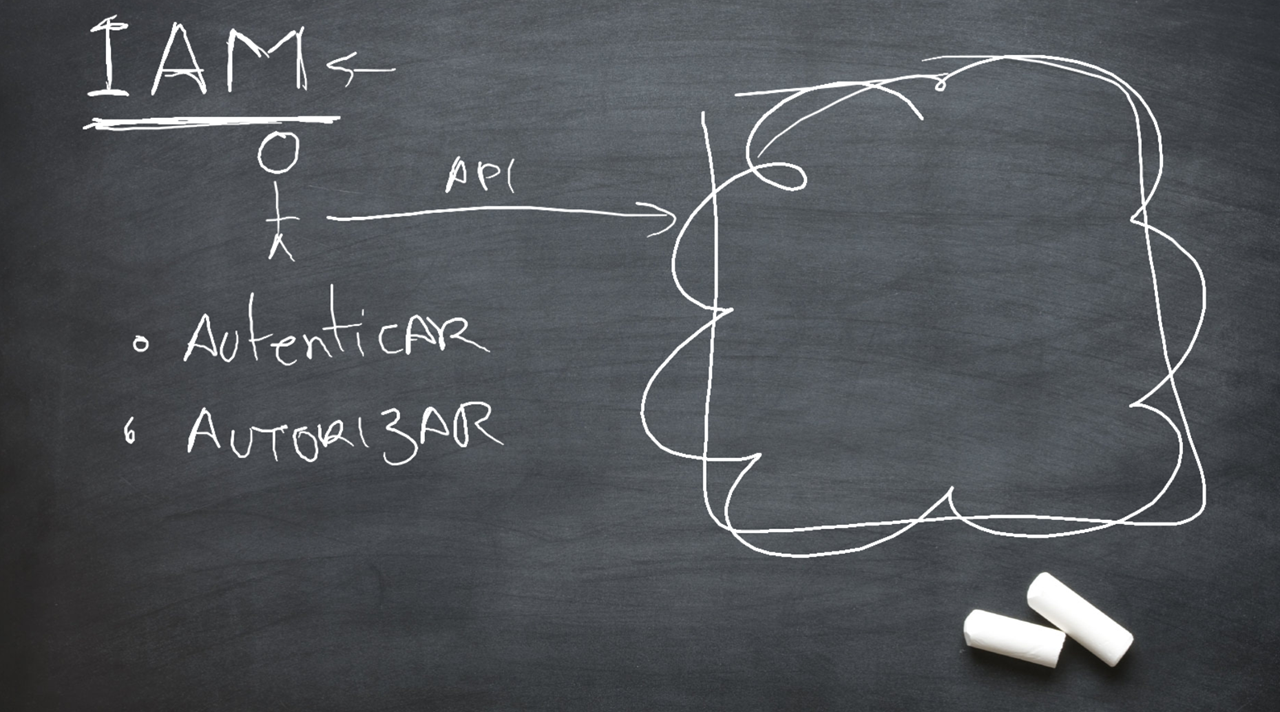 IAM
API
Autenticar
AUTORIZAR